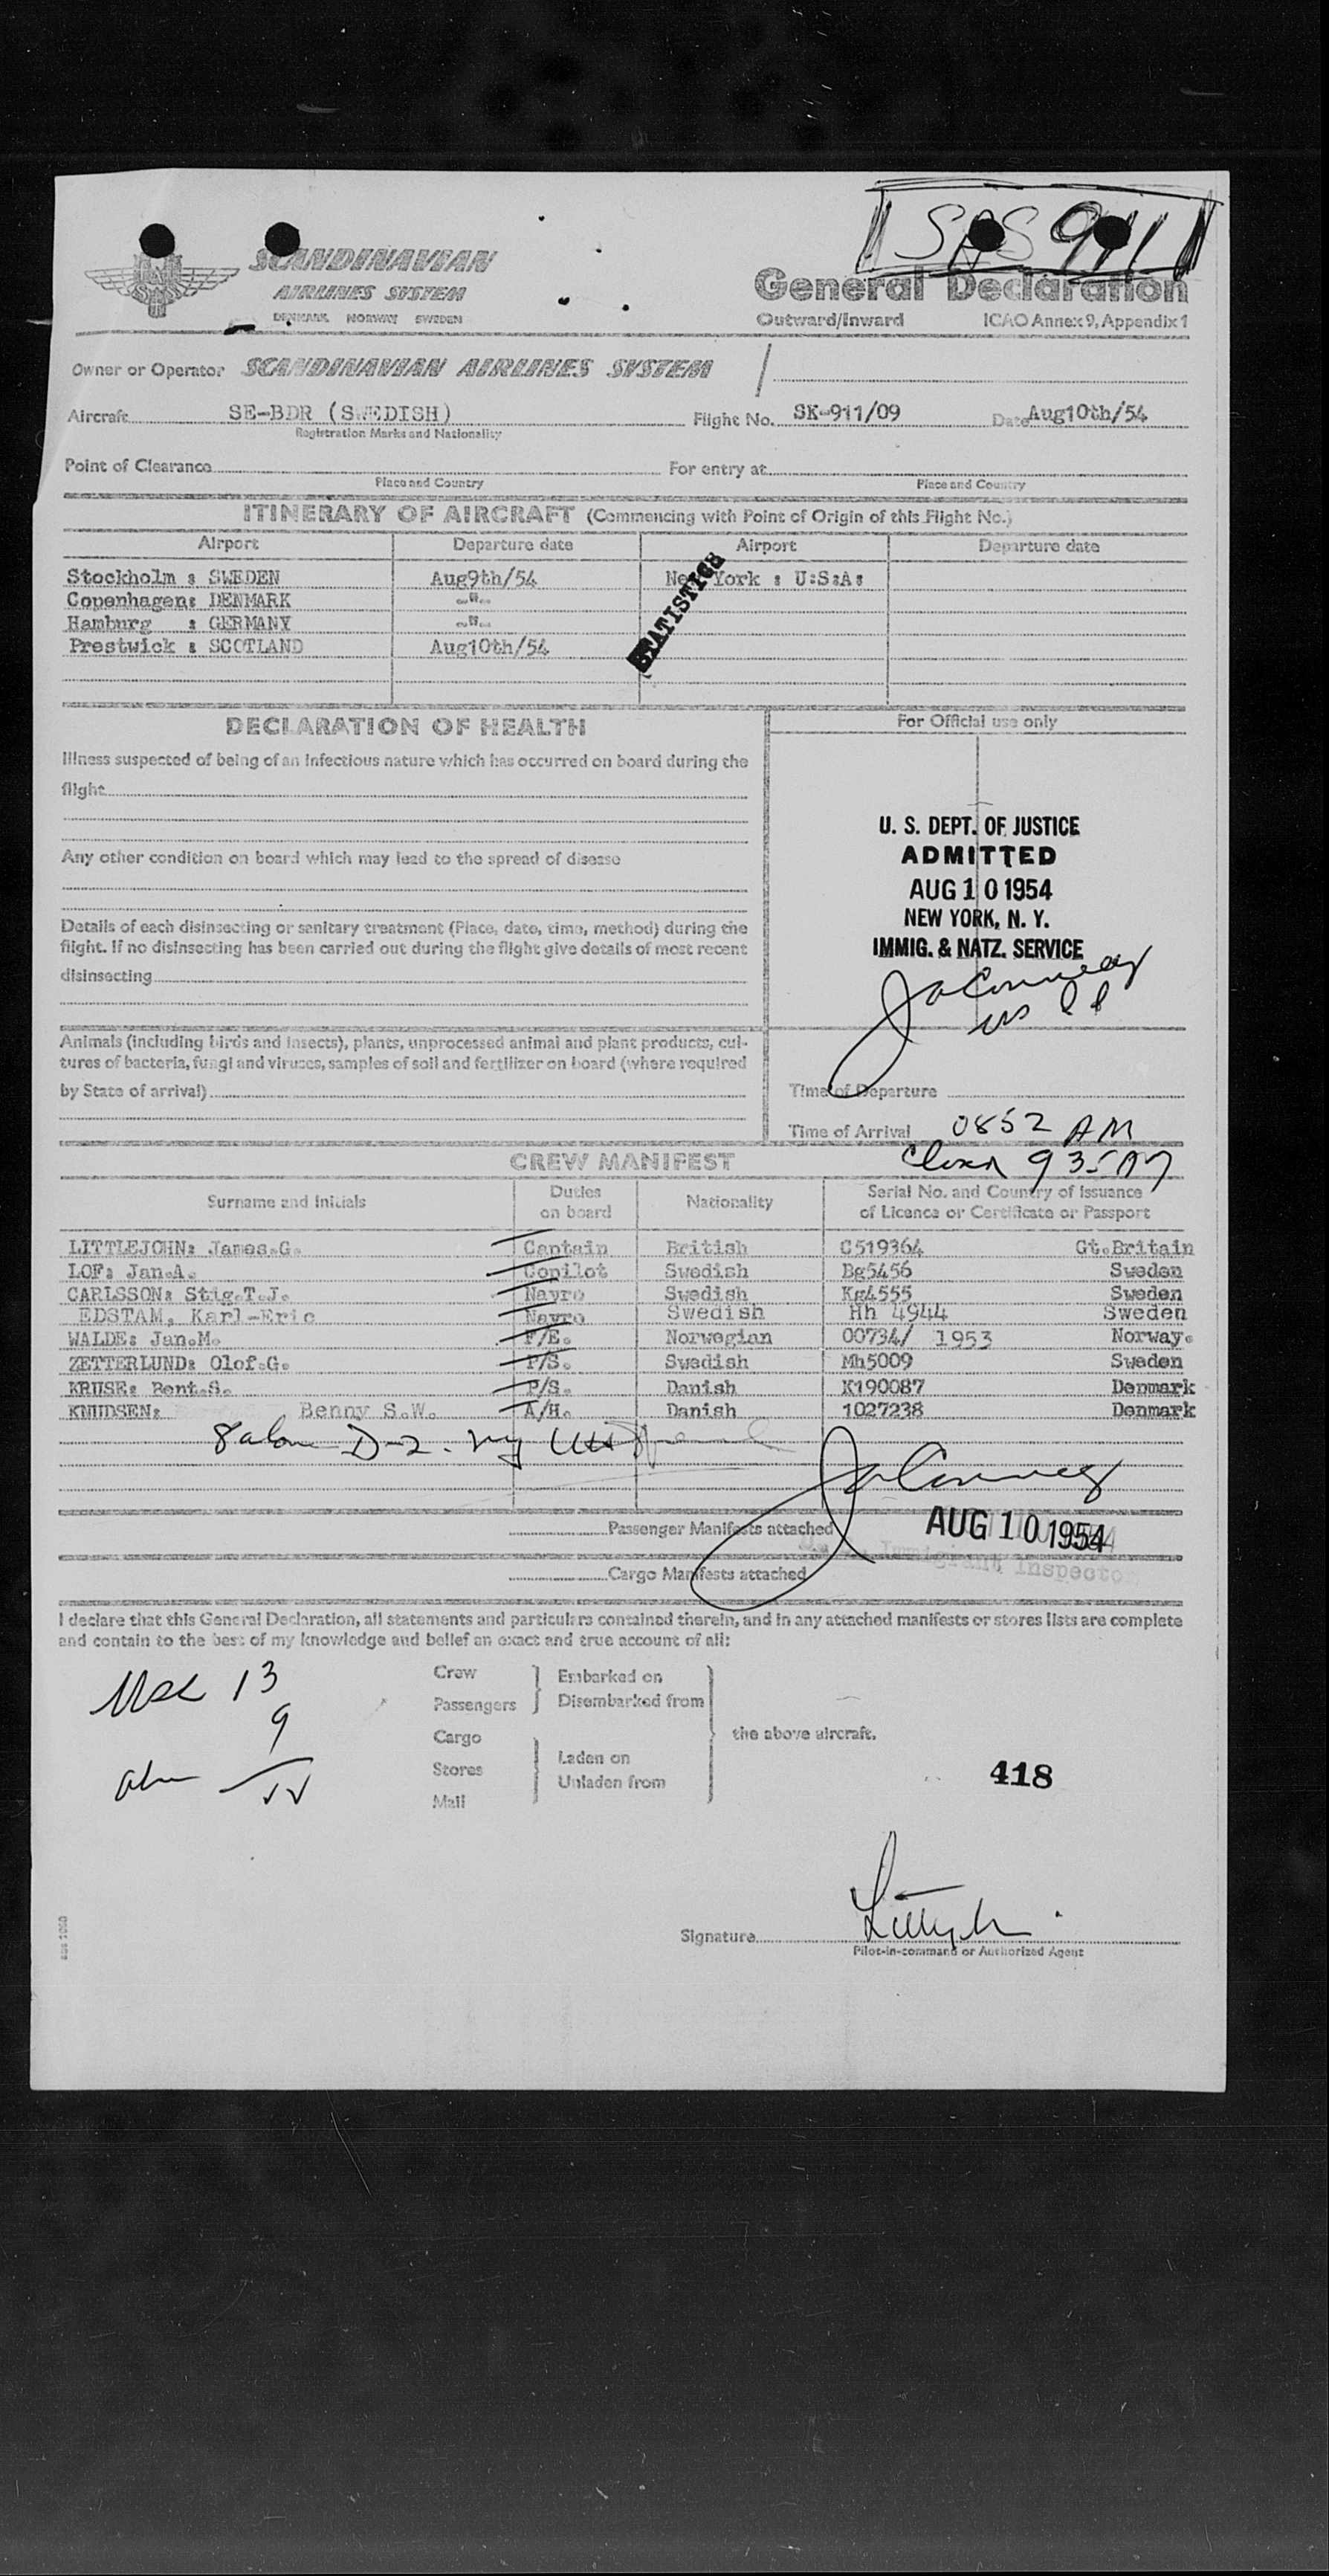 SAS 911
SCANDINAVIAN
AIRLINES SYSTEM
DENMARK NORWAY SWEDEN
General Declaration
Outward/Inward ICAO Annex 9, Appendix 1
Owner or Operator SCANDINAVIAN AIRLINES SYSTEM
Aircraft SE-BDR (SWEDISH) Flight No. SK-911/09 Date Aug10th/54
Registration Marks and Nationality
Point of Clearance For entry at
Place and Country Place and Country
ITINERARY OF AIRCRAFT (Commencing with Point of Origin of this Flight No.)
Airport Departure date Airport Departure date
Stockholm : SWEDEN Aug9th/54 New York : U:S:A:
Copenhagen: DENMARK -"-
Hamburg : GERMANY -"-
Prestwick : SCOTLAND Aug10th/54
STATISTICS
DECLARATION OF HEALTH For Official use only
Illness suspected of being of an infectious nature which has occurred on board during the
flight
Any other condition on board which may lead to the spread of disease
Details of each disinsecting or sanitary treatment (Place, date, time, method) during the
flight. If no disinsecting has been carried out during the flight give details of most recent
disinsecting
U. S. DEPT. OF JUSTICE
ADMITTED
AUG 10 1954
NEW YORK, N. Y.
IMMIG. & NATZ. SERVICE
Animals (including birds and insects), plants, unprocessed animal and plant products, cul-
tures of bacteria, fungi and viruses, samples of soil and fertilizer on board (where required
by State of arrival)
Time of Departure
Time of Arrival 0852 AM
935 AM
CREW MANIFEST
Surname and Initials Duties on board Nationality Serial No. and Country of Issuance of Licence or Certificate or Passport
LITTLEJOHN: James.G. Captain British C519364 Gt.Britain
LOF: Jan.A. Copilot Swedish Bg5456 Sweden
CARLSSON: Stig.T.J. Navro Swedish Kg4555 Sweden
EDSTAM, Karl-Eric Navro Swedish Hh 4944 Sweden
WALDE: Jan.M. F/E. Norwegian 00734/ 1953 Norway.
ZETTERLUND: Olof.G. P/S. Swedish Mh5009 Sweden
KRUSE: Bent.S. P/S. Danish K190087 Denmark
KNUDSEN: Benny S.W. A/H. Danish 1027238 Denmark
Passenger Manifests attached
AUG 10 1954
Immigrant Inspector
Cargo Manifests attached
I declare that this General Declaration, all statements and particulars contained therein, and in any attached manifests or stores lists are complete
and contain to the best of my knowledge and belief an exact and true account of all:
Crew
Passengers
Cargo
Stores
Mail
Embarked on
Disembarked from
Laden on
Unladen from
the above aircraft.
13
9
418
Signature
Pilot-in-command or Authorized Agent